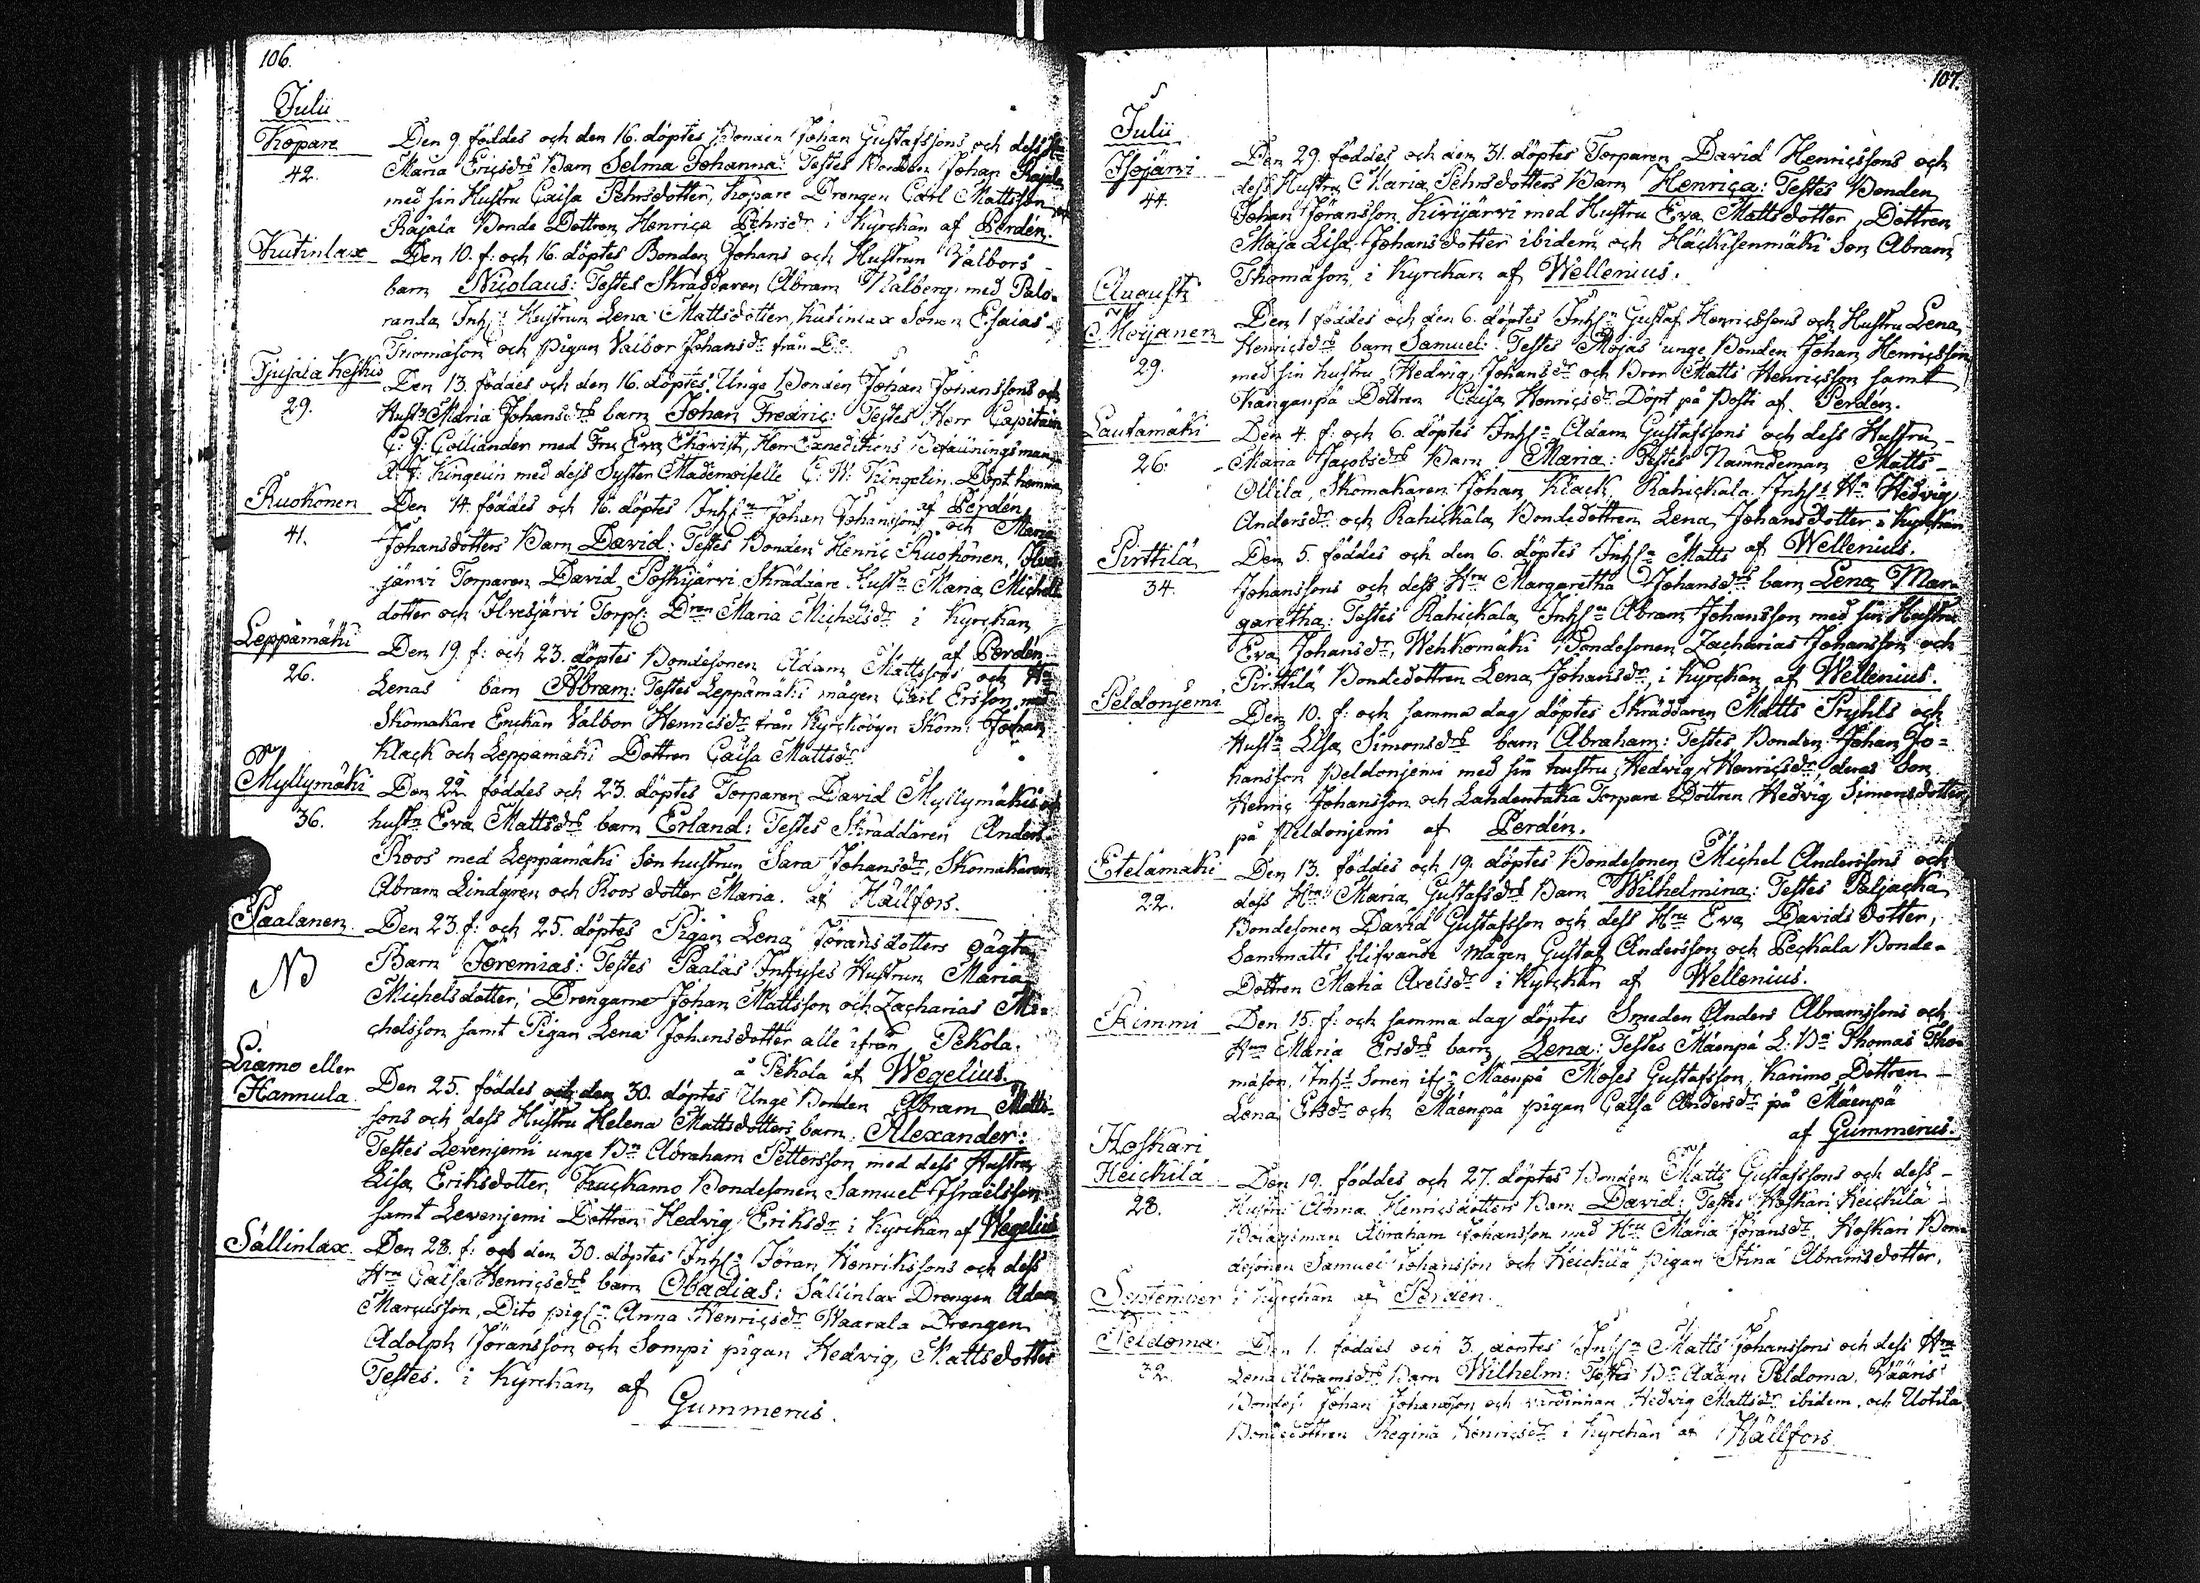 106.
Julii
Kopare
42.
Den 9. föddes och den 16. döptes Bonden Johan Gustafssons och dess Hru
Maria Ericsdrs Barn Selma Johanna: Testes Bonden Johan Rajala
med sin Hustru Caisa Pehrsdotter, Kopare Drengen Carl Mattsson och
Rajala Bonde Dottren Henrica Pehrsdr i Kyrckan af Perdén.
Kutinlax
Den 10. f: och 16. döptes Bonden Johans och Hustrun Valbors
barn Nicolaus: Testes Skräddaren Abram Walberg med Palo-
randa Inhs: Hustrun Lena Mattsdotter, Kutinlax Sonen Esaias
Thomasson och pigan Valbor Johansdr från Do.
Tjujala Keskis
29.
Den 13. föddes och den 16. döptes Unge Bonden Johan Johanssons och
Hustr Maria Johansdrs barn Johan Fredric: Testes Herr Capitain
C: J: Colliander med Fru Eva Ekqvist, Herr Expeditions Befallningsman
A: J: Kingelin med dess Syster Mademoiselle C: W: Kingelin. Döpt hemma
af Perdén
Ruokonen
41.
Den 14. föddes och 16. döptes Inhsn Johan Johanssons och Maria
Johansdotters Barn David: Testes Bonden Henric Ruokonen, Ilves-
järvi Torparen David Poskijärvi Skräddare Hustn Maria Michels
dotter och Ilvesjärvi Torp: Dren Maria Michelsdr i Kyrckan
af Perdén
Leppämäki
26.
Den 19. f: och 23. döptes Bondesonen Adam Mattssons och Hru
Lenas barn Abram: Testes Leppämäki mågen Carl Ersson med
Skomakare Enckan Valbor Henricsdr från Kyrckobyn Skom: Johan
Klack och Leppämäki Dottren Caisa Mattsdr
Myllymäki
36.
Den 22 föddes och 23. döptes Torparen David Myllymäkis och
hustru Eva Mattsdrs barn Erland: Testes Skräddaren Anders
Roos med Leppämäki Sonhustrun Sara Johansdr, Skomakaren
Abram Lindgren och Roos dotter Maria. af Hällfors.
Paalanen
NB
Den 23. f: och 25. döptes Pigan Lena Jöransdotters oägta
Barn Jeremias: Testes Paalas Inhyses Hustrun Maria
Michelsdotter, Drengarne Johan Mattsson och Zacharias Mi-
chelsson samt Pigan Lena Johansdotter alle ifrån Pekola.
å Pekola af Wegelius.
Liamo eller
Hannula
Den 25. föddes och den 30. döptes Unge Bonden Abram Matts-
sons och dess Hustru Helena Mattsdotters barn: Alexander:
Testes Levenjemi unge Bn Abraham Pettersson med dess Hustru
Lisa Eriksdotter, Kuckamo Bondesonen Samuel Israelsson
samt Levenjemi Dottren Hedvig Eriksdr i Kyrckan af Wegelius
Sällinlax
Den 28. f: och den 30. döptes Inhsn Jöran Henrikssons och dess
Hru Caisa Henricsdrs barn Obadias: Sällinlax Drengen Adam
Marcusson, Dito pign Anna Henricsdr Waarala Drengen
Adolph Jöransson och Sompi pigan Hedvig Mattsdotter
Testes. i Kyrckan af
Gummerus.
107.
Julii
Isojärvi
44.
Den 29. föddes och den 31. döptes Torparen David Henricssons och
dess Hustru Maria Pehrsdotters Barn Henrica: Testes Bonden
Johan Jöransson Kivijärvi med Hustru Eva Mattsdotter, Dottren
Maja Lisa Johansdotter ibidem och Häckisenmäki Son Abram
Thomasson i Kyrckan af Wellenius.
Augusti
Moijanen
29.
Den 1 föddes och den 6. döptes Inhsn Gustaf Henricssons och Hustru Lena
Henricsdrs barn Samuel: Testes Mojas unge Bonden Johan Henricsson
med sin hustru Hedvig Johansdr och Bron Matts Henricsson samt
Kanganpä Dottren Caisa Henricsdr. Döpt på Posti af Perdén.
Lautamäki
26.
Den 4. f: och 6. döptes Inhsn Adam Gustafssons och dess Hustru
Maria Jacobsdrs Barn Maria: Testes Nämndeman Matts
Ollila, Skomakaren Johan Klack, Rahickala Inhs: Hn Hedvig
Andersdr och Rahickala Bondedottren Lena Johansdotter i Kyrckan
af Wellenius.
Pirttilä
34.
Den 5. föddes och den 6. döptes Inhsn Matts
Johanssons och dess Hru Margaretha Johansdrs barn Lena Mar-
garetha: Testes Rahickala Inhsn Abram Johansson med sin Hustru
Eva Johansdr, Wehkomäki Bondesonen Zacharias Johansson och
Pirttilä Bondedottren Lena Johansdr, i Kyrckan af Wellenius.
Peldonjemi
Den 10. f: och samma dag döptes Skräddaren Matts Pryhls och
Hustn Lisa Simonsdrs barn Abraham: Testes Bonden Johan Jo-
hansson Peldonjemi med sin hustru Hedvig Henricsdr, deras Son
Henric Johansson och Landentaka Torpare Dottren Hedvig Simonsdotter
på Peldonjemi af Perdén.
Etelämäki
22.
Den 13. föddes och 19. döptes Bondesonen Michel Anderssons och
dess Hru Maria Gustafsdrs Barn Wilhelmina: Testes Paljacka
Bondesonen David Gustafsson och dess Hru Eva Davidsdotter,
Sammatti blifvande Mågen Gustaf Andersson och Peckala Bonde-
Dottren Maria Axelsdr i Kyrckan af Wellenius.
Kimmi
Den 15. f: och samma dag döptes Smeden Anders Abramssons och
Hrun Maria Ersdrs barn Lena: Testes Mäenpä L: Bn Thomas Tho-
masson, Inhs Sonen ifn Mäenpä Moses Gustafsson, Karimo Dottren
Lena Ersdr och Mäenpä pigan Caisa Andersdr på Mäenpä
af Gummerus.
Koskari
Heickilä
28.
Den 19. föddes och 27. döptes Bonden Matts Gustafssons och dess
Hustru Anna Henricsdotters Barn David: Testes Koskari Heickilä
Bolagsman Abraham Johansson med Hru Maria Jöransdr, Koskari Bon-
desonen Samuel Johansson och Heickilä pigan Stina Abramsdotter,
i Kyrckan af Perdén.
September
Peldoma
32.
Den 1. föddes och 3. döptes Inhsn Matts Johanssons och dess Hru
Lena Abramsdrs Barn Wilhelm: Testes Bn Adam Peldoma, Vääris
Bondes: Johan Johansson och värdinnan Hedvig Mattsdr ibidem, och Uotila
Bondedottren Regina Henricsdr i Kyrckan af Hällfors